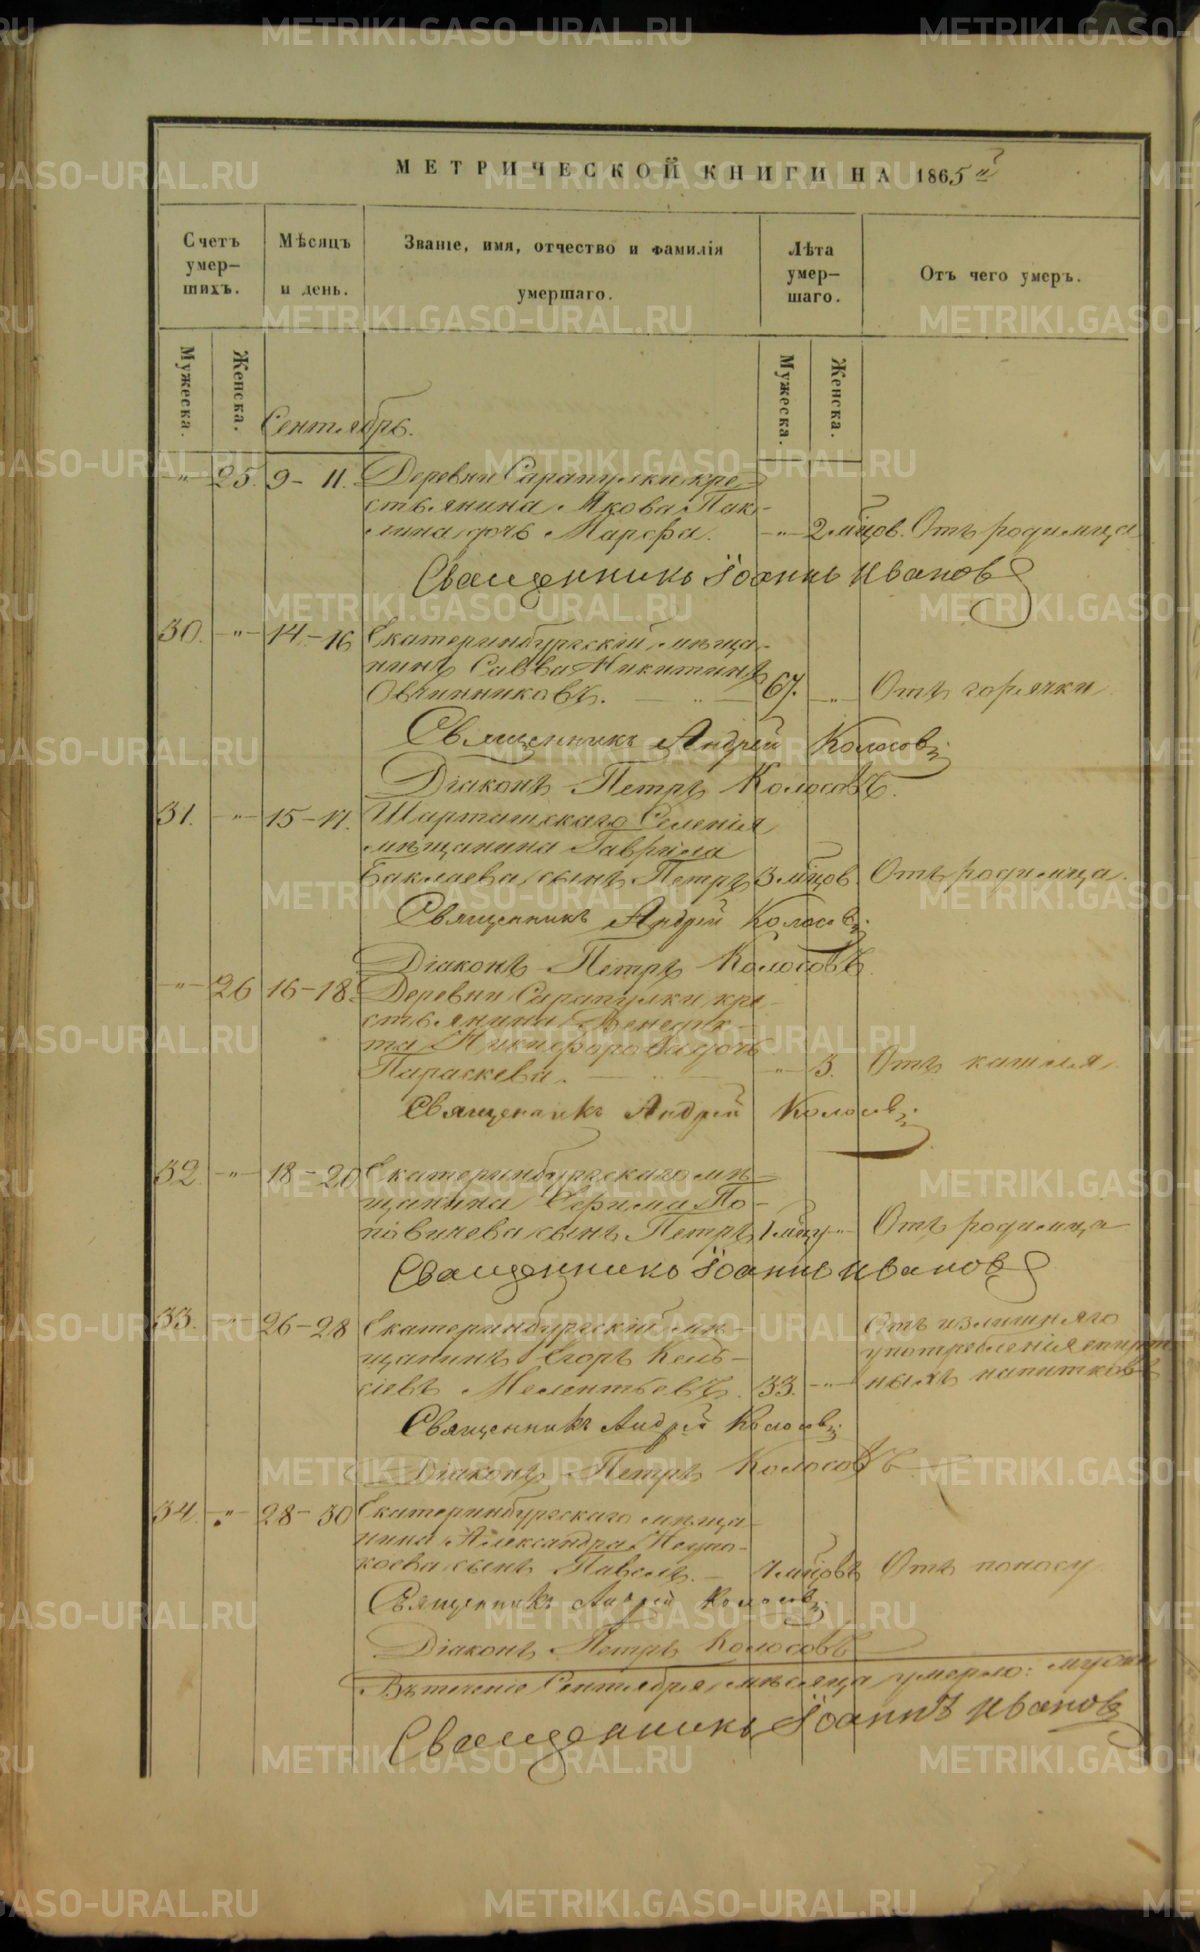 МЕТРИЧЕСКОЙ КНИГИ НА 1865й
Счетъ умер-шихъ.
Мѣсяцъ и день.
Званіе, имя, отчество и фамилія умершаго.
Лѣта умер-шаго.
Отъ чего умеръ.
Мужеска. Женска. Мужеска. Женска.
Сентябрь.
-"- 25. 9-11. Деревни Сарапулки кре-
стьянина Якова Пак-
лина дочь Марѳа. -"- 2 мѣцов. Отъ родимца
Священникъ Іоаннъ Ивановъ
30. -"- 14-16 Екатеринбургскій мѣща-
нинъ Савва Никитинъ
Овчинниковъ. -"- 67. -"- Отъ горячки
Священникъ Андрей Колосовъ
Діаконъ Петръ Колосовъ.
31. -"- 15-17. Шарташскаго Селенія
мѣщанина Гаврила
Баклаева сынъ Петръ 3 мѣцов. Отъ родимца.
Священникъ Андрей Колосовъ
Діаконъ Петръ Колосовъ.
-"- 26 16-18. Деревни Сарапулки кре-
стьянина Венедик-
та Никифорова дочь
Параскева. -"- 3. Отъ кашля.
Священникъ Андрей Колосовъ
32. -"- 18-20 Екатеринбургскаго мѣ-
щанина Ефима По-
повичева сынъ Петръ 1 мѣцу -"- Отъ родимца
Священникъ Іоаннъ Ивановъ
33. -"- 26-28 Екатеринбургскій мѣ-
щанинъ Егоръ Кель-
сіевъ Мелентьевъ. 33. -"-
Отъ излишняго
употребленія спирт
ныхъ напитковъ
Священникъ Андрей Колосовъ
Діаконъ Петръ Колосовъ.
34. -"- 28-30 Екатеринбургскаго мѣща-
нина Александра
коева сынъ Павелъ. - мѣцовъ Отъ поносу
Священникъ Андрей Колосовъ
Діаконъ Петръ Колосовъ
Въ теченіе Сентября мѣсяца умерло:
Священникъ Іоаннъ Ивановъ
METRIKI.GASO-URAL.RU